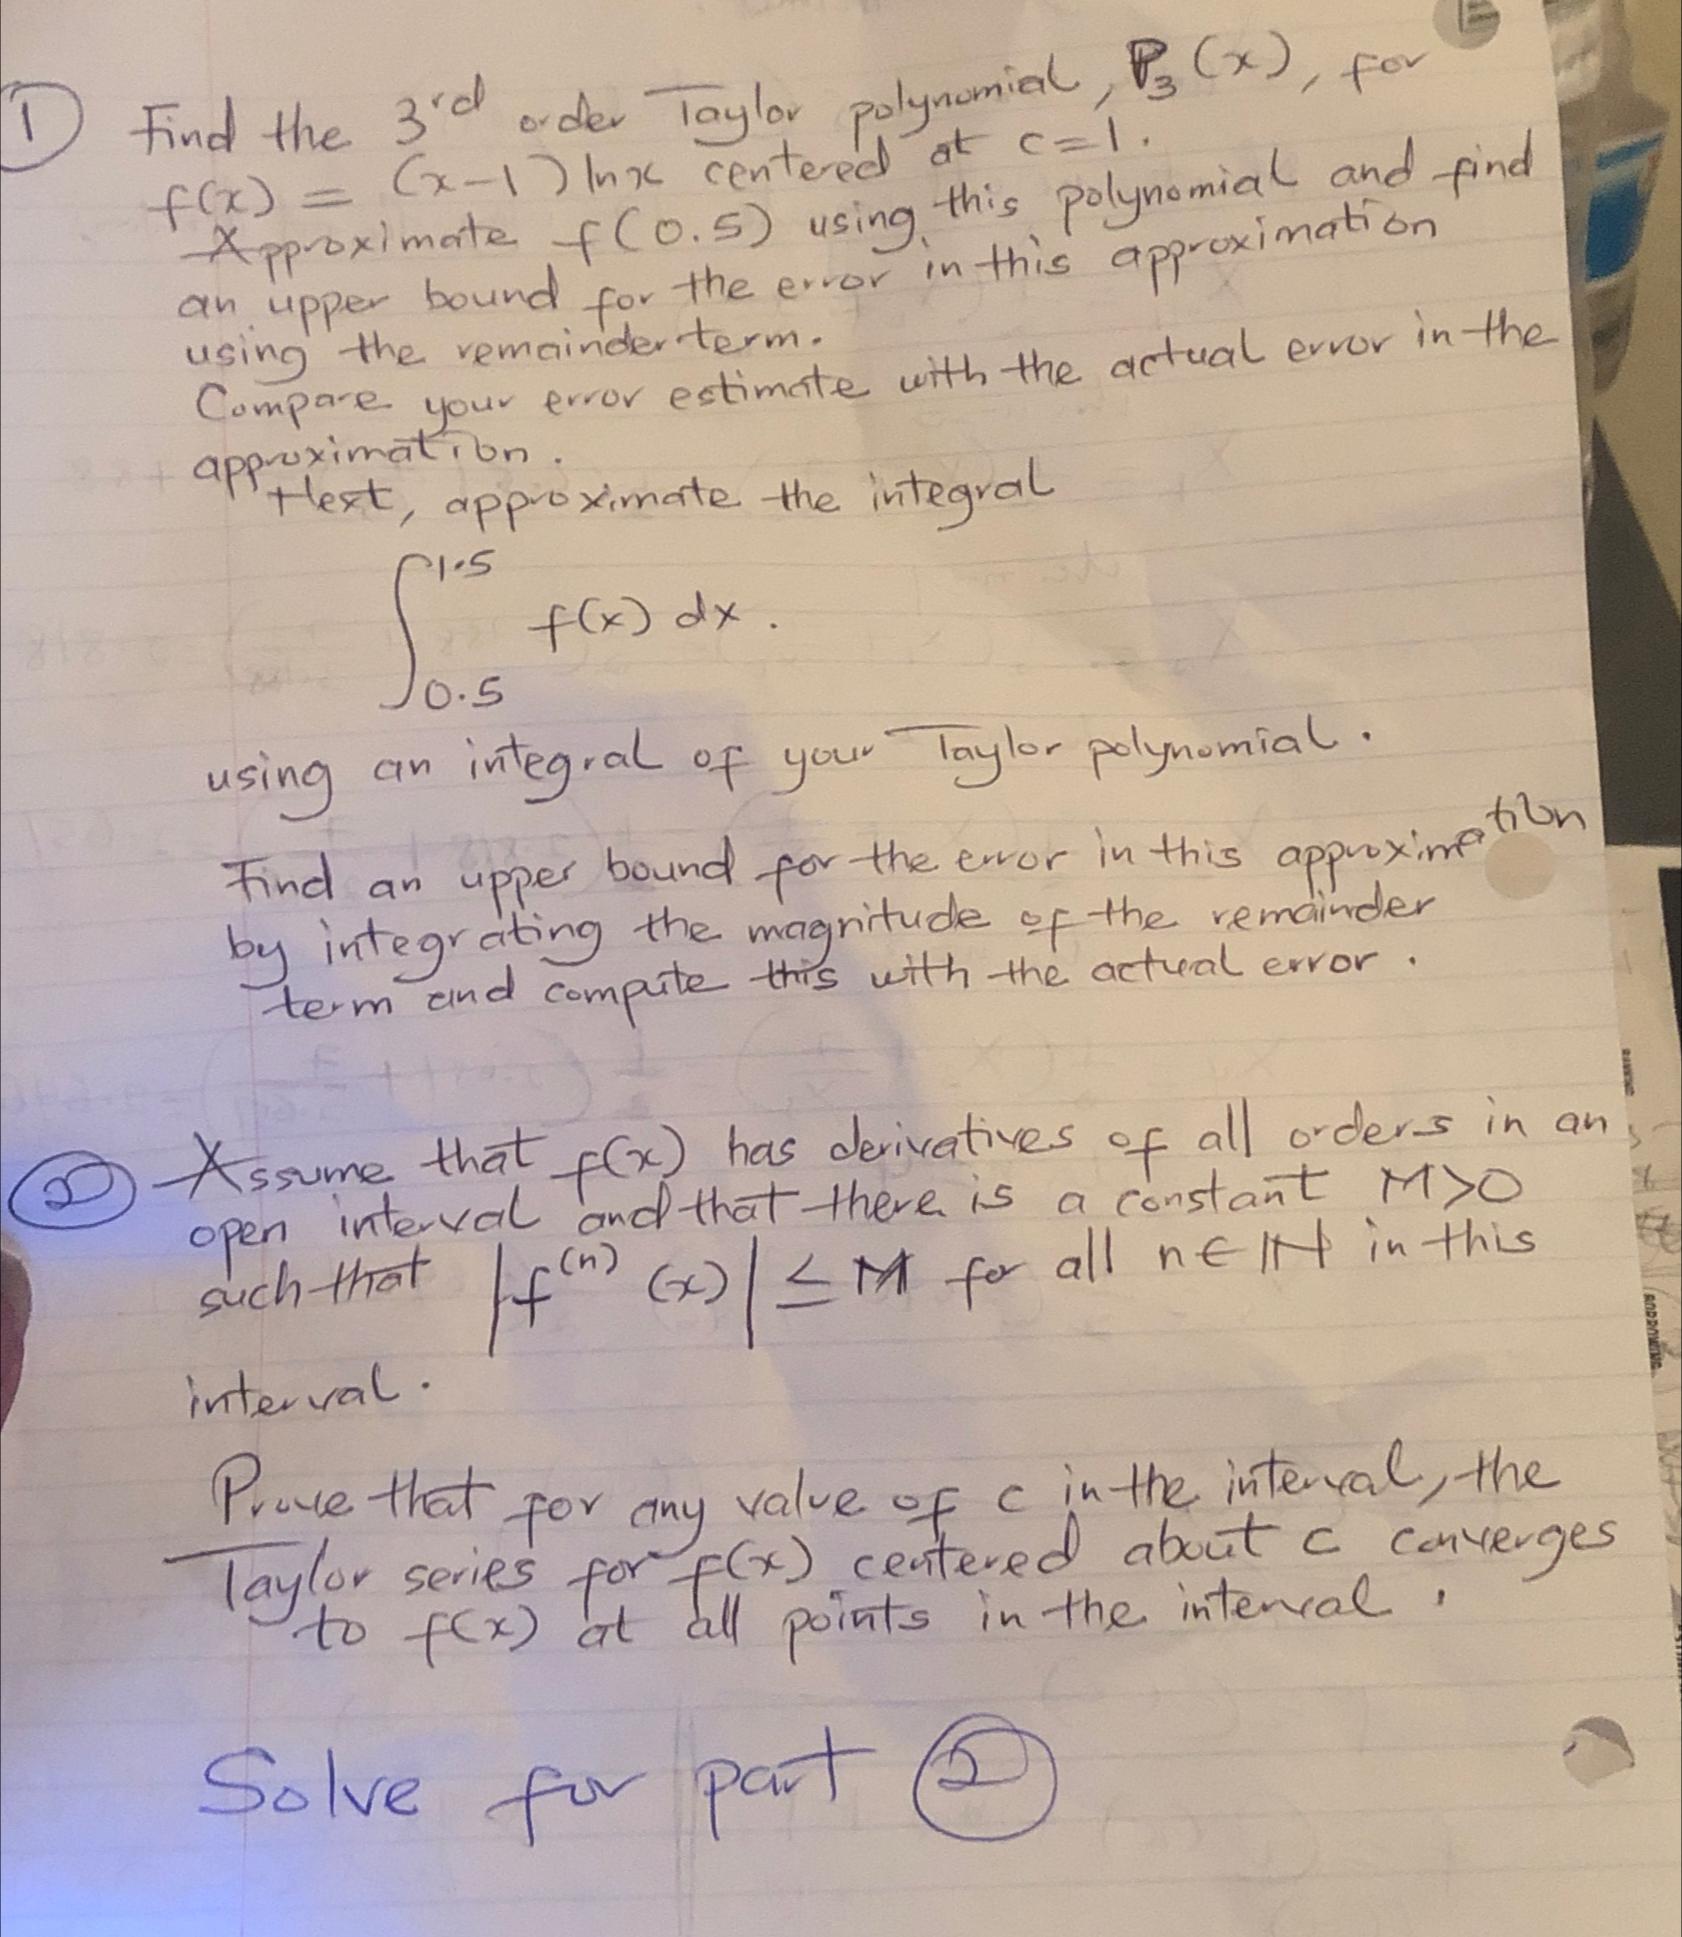 ① Find the 3rd order Taylor polynomial, P₃(x), for
f(x) = (x-1) ln x centered at c=1.
Approximate f(0.5) using this polynomial and find
an upper bound for the error in this approximation
using the remainder term.
Compare your error estimate with the actual error in the
approximation.
Next, approximate the integral
∫₀.₅^1.5 f(x) dx.
using an integral of your Taylor polynomial.
Find an upper bound for the error in this approximation
by integrating the magnitude of the remainder
term and compute this with the actual error.
② Assume that f(x) has derivatives of all orders in an
open interval and that there is a constant M>0
such that |f^(n) (x)| ≤ M for all n∈ℕ in this
interval.
Prove that for any value of c in the interval, the
Taylor series for f(x) centered about c converges
to f(x) at all points in the interval.
Solve for part ②